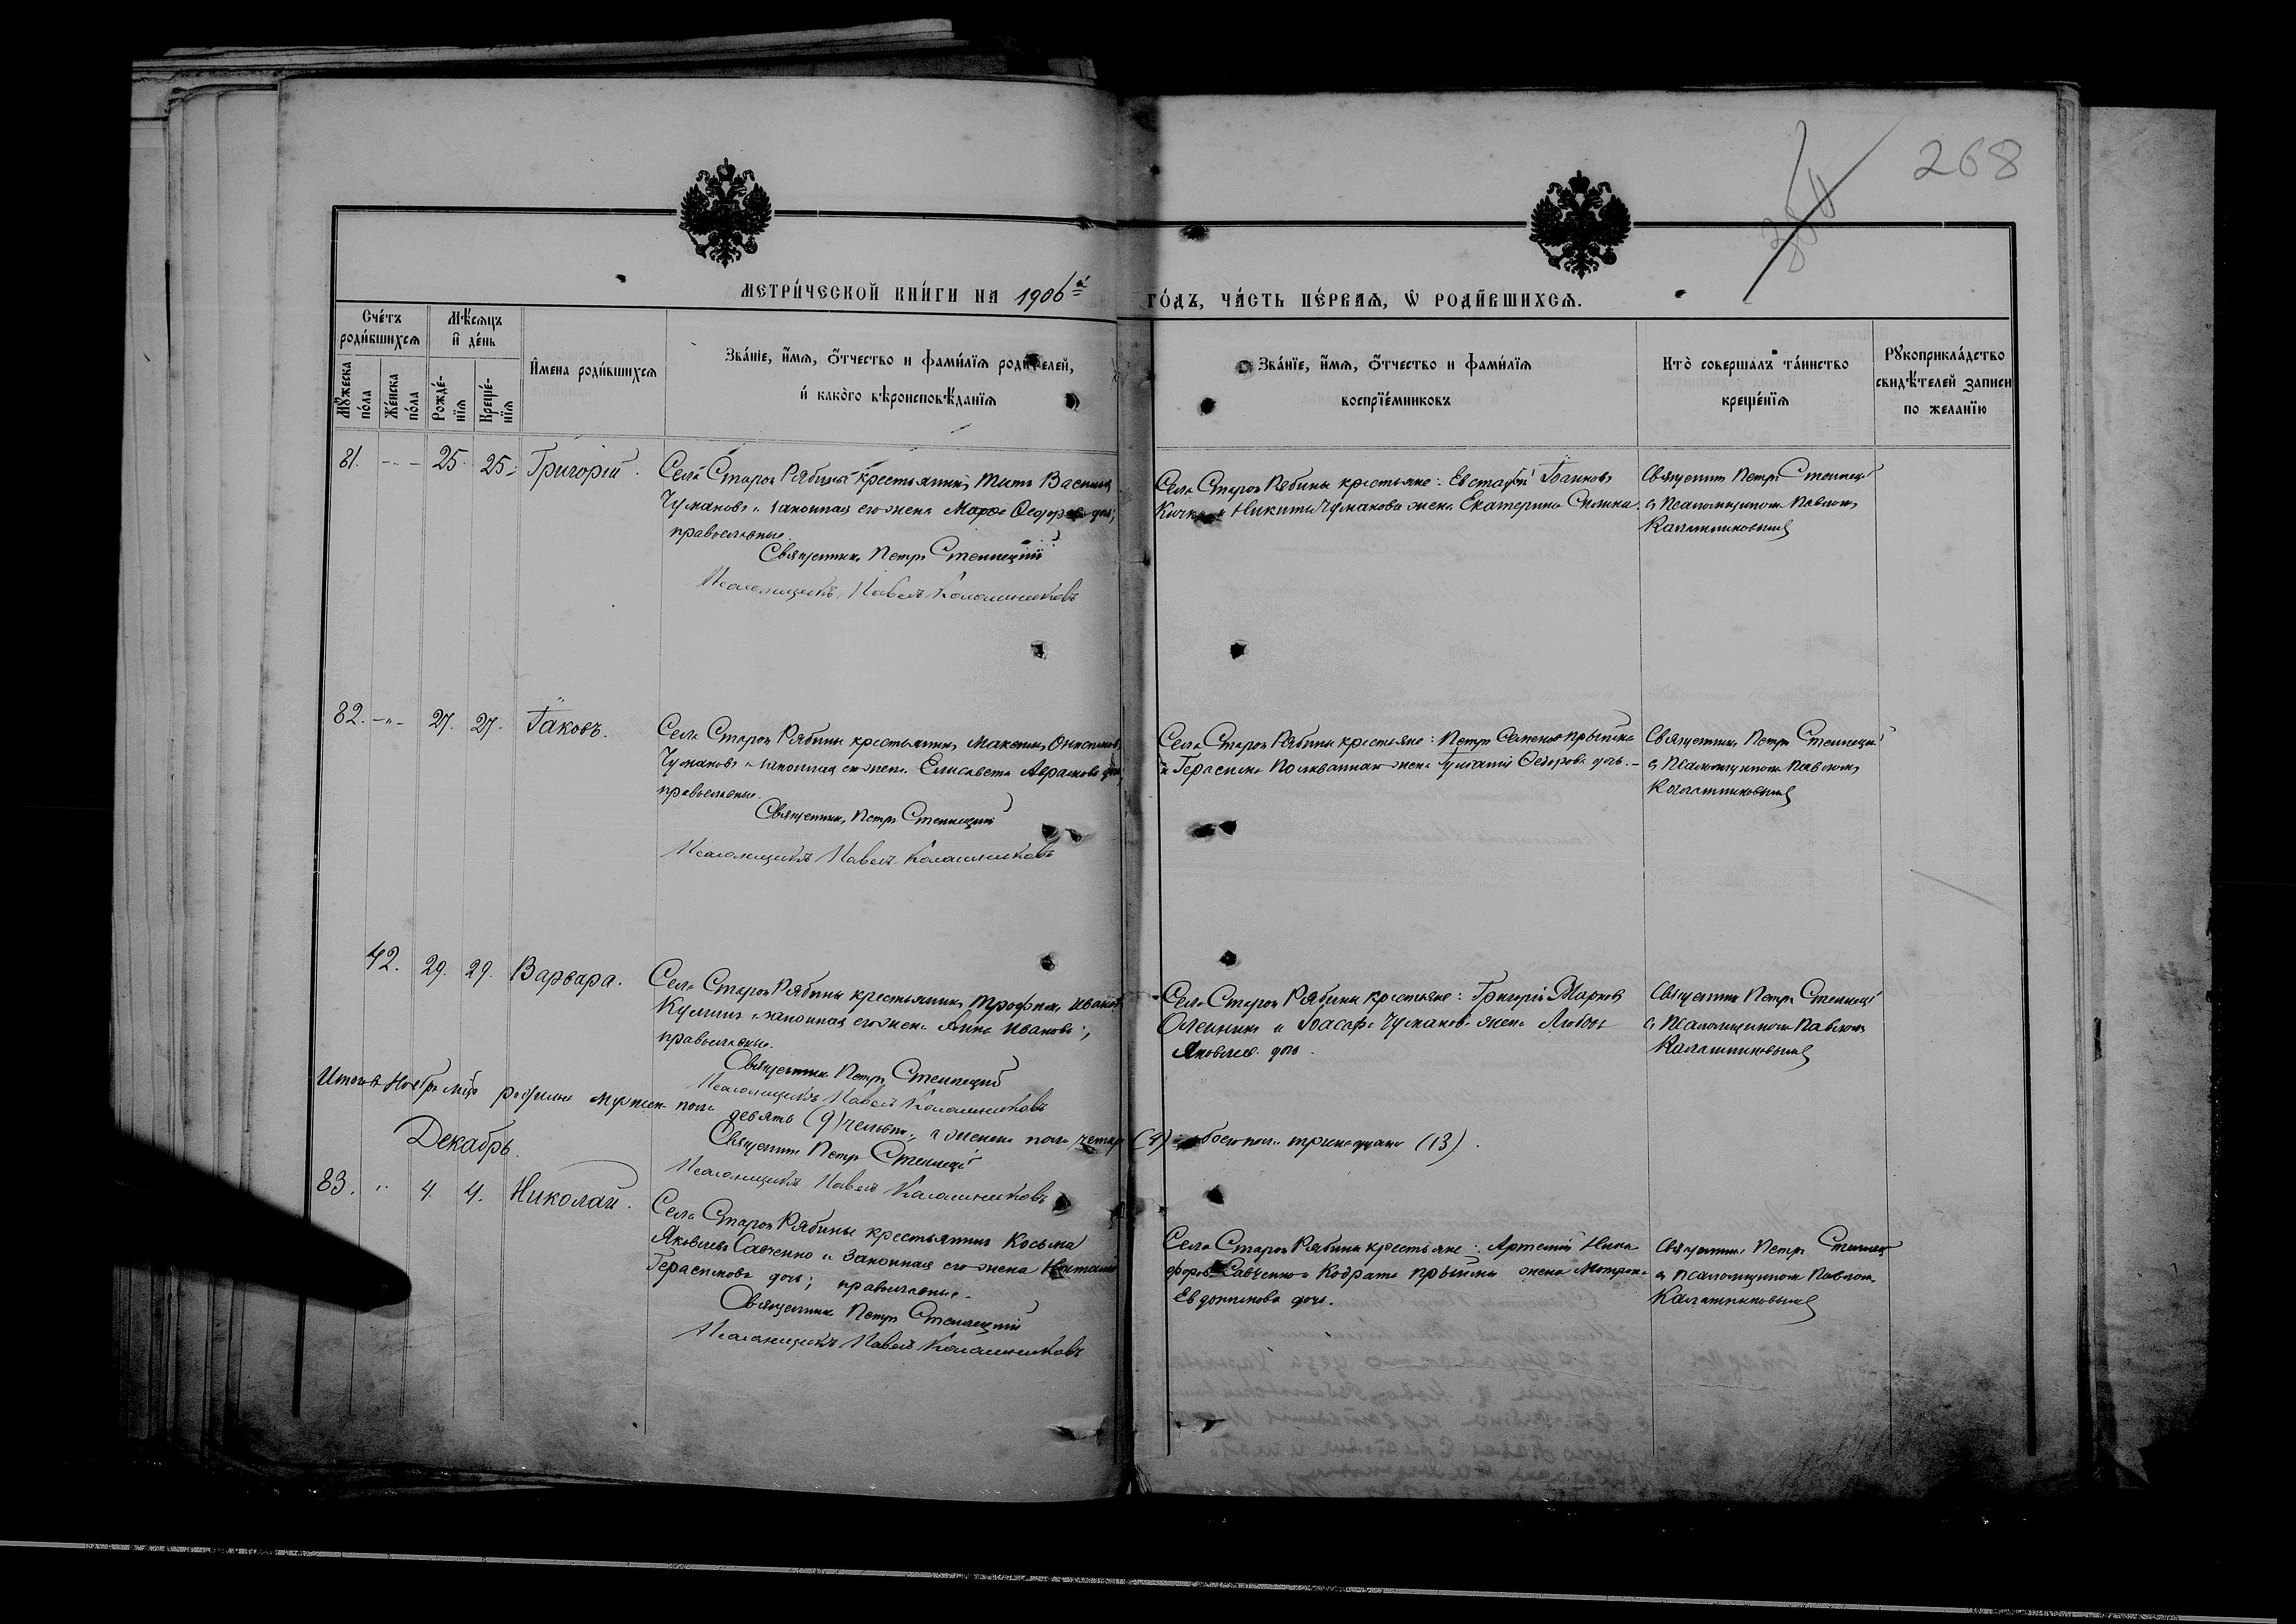 268
384
МЕТРИ́ЧЕСКОЙ КНИ́ГИ НА 1906й ГО́ДЪ, ЧА́СТЬ ПЕ́РВАѦ, Ѡ РОДИ́ВШИХСѦ.
Сче́тъ роди́вшихсѧ
Мꙋ́жеска по́ла
Же́нска по́ла
Мѣ́сѧцъ и҆ де́нь
Рожде́нїѧ
Креще́нїѧ
И҆мена роди́вшихсѧ
Зва́нїе, и҆́мѧ, ѻ҆́тчество и фами́лїѧ родителей,
и҆ како́го вѣроисповѣ́данїѧ
Зва́нїе, и҆́мѧ, ѻ҆́тчество и фами́лїѧ
воспрїе́мниковъ
Кто̀ соверша́лъ та́инство
креще́нїѧ
Рꙋкоприкла́дство
свидѣ́телей записи
по желанїю
81. 25. 25. Григорій.
Села Старой Рябины крестьянинъ Титъ Васильев
Чумаковъ и законная его жена Федорова дочь;
православные.
Священникъ Петръ Стеллецкій
Псаломщикъ Павелъ Калашниковъ
Села Старой Рябины крестьяне: Евстафій Іоанновъ
и Никиты Чумакова жена Екатерина
Священник Петръ Стеллецкій
съ Псаломщикомъ Павломъ
Калашниковымъ
82. 27. 27. Іаковъ.
Села Старой Рябины крестьянинъ Максимъ
Чумаковъ и законная его жена Елисавета Авраамова дочь,
православные.
Священникъ Петръ Стеллецкій
Псаломщикъ Павелъ Калашниковъ
Села Старой Рябины крестьяне: Петръ Семеновъ
и Герасима жена Федорова дочь.
Священникъ Петръ Стеллецкій
съ Псаломщикомъ Павломъ
Калашниковымъ
42. 29. 29. Варвара.
Села Старой Рябины крестьянинъ Трофимъ Ивановъ
и законная его жена Анна Иванова;
православные.
Священникъ Петръ Стеллецкій
Псаломщикъ Павелъ Калашниковъ
Села Старой Рябины крестьяне: Григорій Марковъ
Олейникъ и Іоасафа Чумакова жена Любовь
Яковлева дочь.
Священникъ Петръ Стеллецкій
съ Псаломщикомъ Павломъ
Калашниковымъ
Итого въ Ноябрѣ мцѣ родилось мужеск. пола девять (9) человѣкъ, а женска пола четыре (4) обоего пола тринадцать (13).
Священник Петръ Стеллецкій
Псаломщикъ Павелъ Калашниковъ
Декабрь.
83. 4. 4. Николай.
Села Старой Рябины крестьянинъ Косьма
Яковлевъ Савченко и законная его жена
Герасимова дочь; православные.
Священникъ Петръ Стеллецкій
Псаломщикъ Павелъ Калашниковъ
Села Старой Рябины крестьяне: Артемій Ники-
форовъ Савченко и Кодрата жена Матрона
Евдокимова дочь.
Священникъ Петръ Стеллецкій
съ псаломщикомъ Павломъ
Калашниковымъ